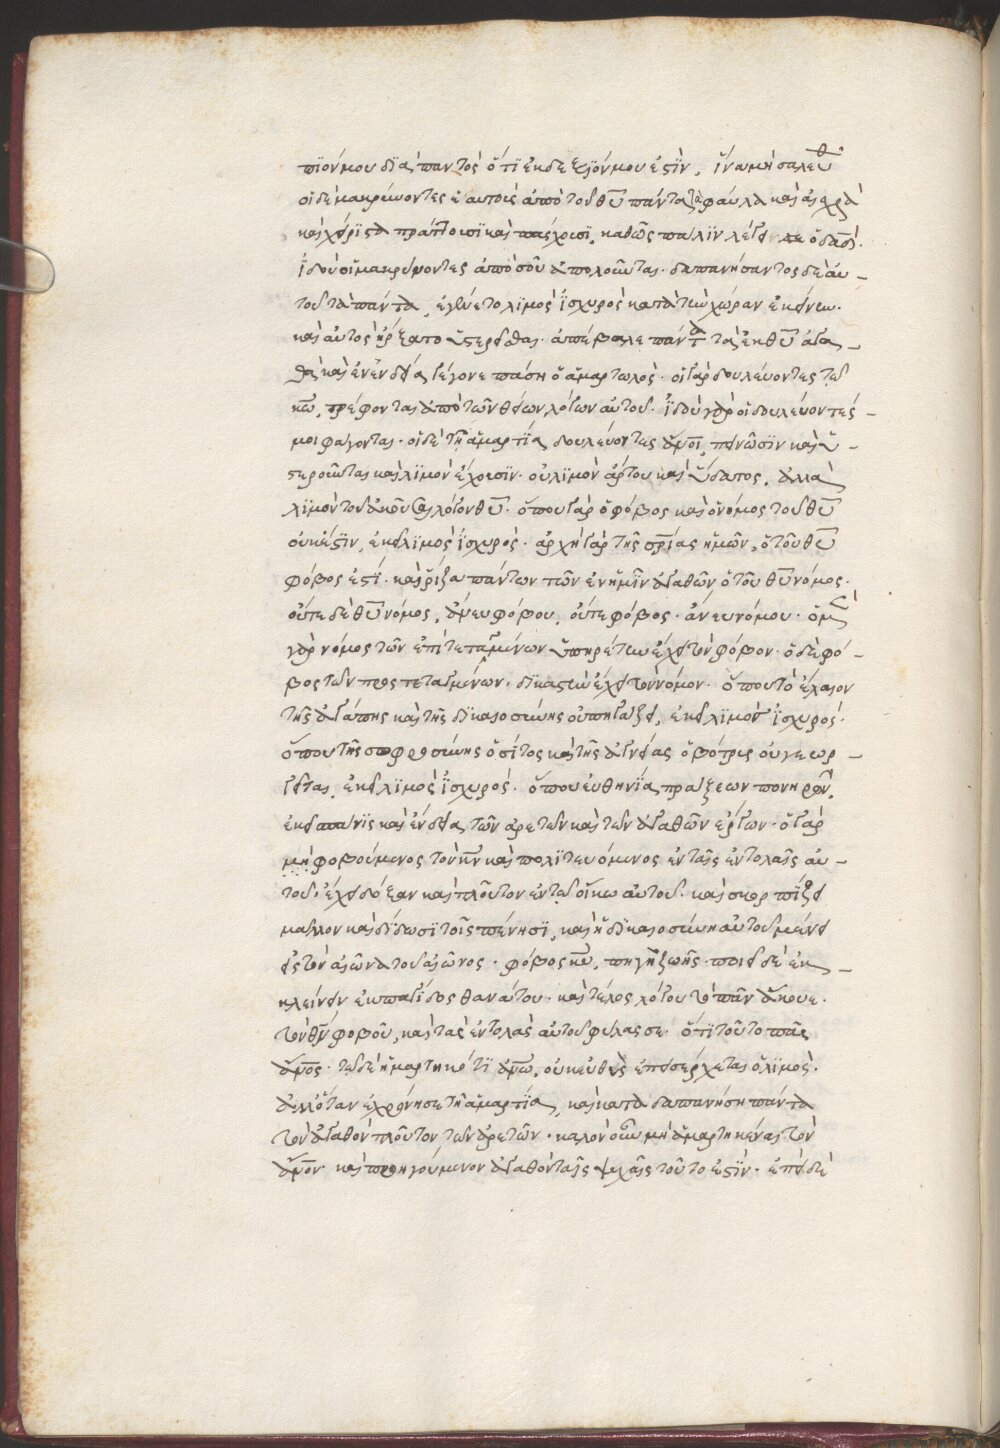 πϊόν μου δϊαπαντὸς ὅτϊ ἐκ δεξϊῶν μου ἐστὶν, ἵνα μὴ σαλευθ
οἱ δὲ μακρύνοντες ἑαυτοὺς ἀπὸ τοῦ θυ πάντα τὰ φαύλα καὶ αἰσχρὰ
καὶ πράττουσϊ καὶ πάσχουσϊ, καθὼς πάλϊν λέγει ὁ δαδ·
ἰδοὺ οἱ μακρύνοντες ἀπὸ σοῦ ἀπολοῦνται· δαπανήσαντος δὲ αὐ-
τοῦ τὰ πάντα, ἐγένετο λϊμὸς ἰσχυρὸς κατὰ τὴν χώραν ἐκείνην·
καὶ αὐτὸς ἤρξατο ὑστερεῖσθαι· ἀπέβαλε πάντα τὰ ἐκ θυ ἀγα-
θὰ καὶ ἐν ἐνδείᾳ γέγονε πάσῃ ὁ ἁμαρτωλός· οἱ γὰρ δουλεύοντες τῷ
κω, τρέφονται ἀπὸ τῶν θείων λόγων αὐτοῦ· ἰδοὺ γὰρ οἱ δουλεύοντές-
μοι φάγονται· οἱ δὲ τῇ ἁμαρτίᾳ δουλεύοντες ἄνοι, πεινῶσϊν καὶ ὑ-
στεροῦνται καὶ λϊμὸν ἔχουσϊν· οὐ λϊμὸν ἄρτου καὶ ὕδατος, ἀλλὰ
λϊμὸν τοῦ ἀκοῦσαι λόγον θυ· ὅπου γὰρ ὁ φόβος καὶ ὁ νόμος τοῦ θυ
οὐκ ἔστϊν, ἐκεῖ λϊμὸς ἰσχυρός· ἀρχὴ γὰρ τῆς σριας ἡμῶν, ὁ τοῦ θυ
φόβος ἐστί· καὶ ῥίζα πάντων τῶν ἐν ἡμῖν ἀγαθῶν ὁ τοῦ θυ νόμος·
οὔτε δὲ θυ νόμος, ἄνευ φόβου, οὔτε φόβος· ἄνευ νόμου· ὁ μὲν
γὰρ νόμος τῶν ἐπιτεταγμένων ὑπηρέτην ἔχει τὸν φόβον· ὁ δὲ φό-
βος τῶν προστεταγμένων· δϊκαστὴν ἔχει τὸν νόμον· ὅπου τὸ ἔλαιον
τῆς ἀγάπης καὶ τῆς δϊκαιοσύνης οὐ πηγάζει, ἐκεῖ λϊμὸν ἰσχυρός·
ὅπου τῆς σωφροσύνης ὁ σίτος καὶ τῆς ἁγνείας ὁ βότρυς οὐ γεωρ-
γεῖται, ἐκεῖ λϊμὸς ἰσχυρός· ὅπου εὐθηνία πράξεων πονηρῶν,
ἐκεῖ σπάνϊς καὶ ἔνδεια τῶν ἀρετῶν καὶ τῶν ἀγαθῶν ἔργων· ὁ γὰρ
μὴ φοβούμενος τὸν κν καὶ πολϊτευόμενος ἐν ταῖς ἐντολαῖς αὐ-
τοῦ· ἔχει δόξαν καὶ πλοῦτον ἐν τῷ οἴκω αὐτοῦ· καὶ σκορπίζει
μάλλον καὶ δίδωσϊ τοῖς πένησϊ, καὶ ἡ δϊκαιοσύνη αὐτοῦ μένει
εἰς τὸν αἰῶνα τοῦ αἰῶνος· φόβος κυ, πηγὴ ζωῆς· ποιεῖ δὲ ἐκ-
κλείνειν ἐκ παγίδος θανάτου· καὶ τέλος λόγου τὸ πᾶν ἄκουε·
τὸν θν φοβοῦ, καὶ τὰς ἐντολὰς αὐτοῦ φύλασσε· ὅτϊ τοῦτο πᾶς
ἄνος· τῷ δὲ ἡμαρτηκότϊ ἀνω, οὐκ εὐθὺς ἐπεισέρχεται ὁ λϊμός·
ἀλλ' ὅταν ἐχρόνησε τῇ ἁμαρτίᾳ, καὶ καταδαπανήσῃ πάντα
τὸν ἀγαθὸν πλοῦτον τῶν ἀρετῶν· καλὸν οὖν μὴ ἁμαρτηκέναι τὸν
ἄνον· καὶ προηγούμενον ἀγαθὸν ταῖς ψυχαῖς τοῦτο ἐστϊν· ἐπεὶ δὲ